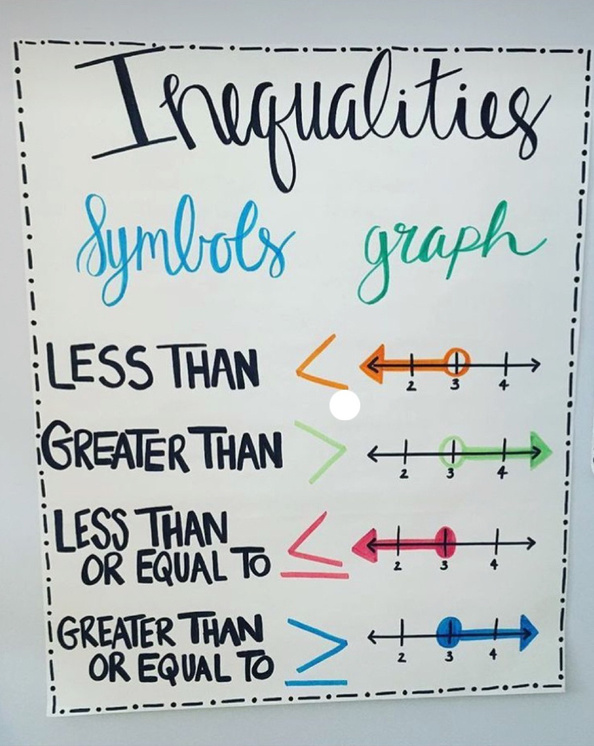 Inequalities
Symbols graph
LESS THAN < 2 3 4
GREATER THAN > 2 3 4
LESS THAN
OR EQUAL TO ≤ 2 3 4
GREATER THAN
OR EQUAL TO ≥ 2 3 4